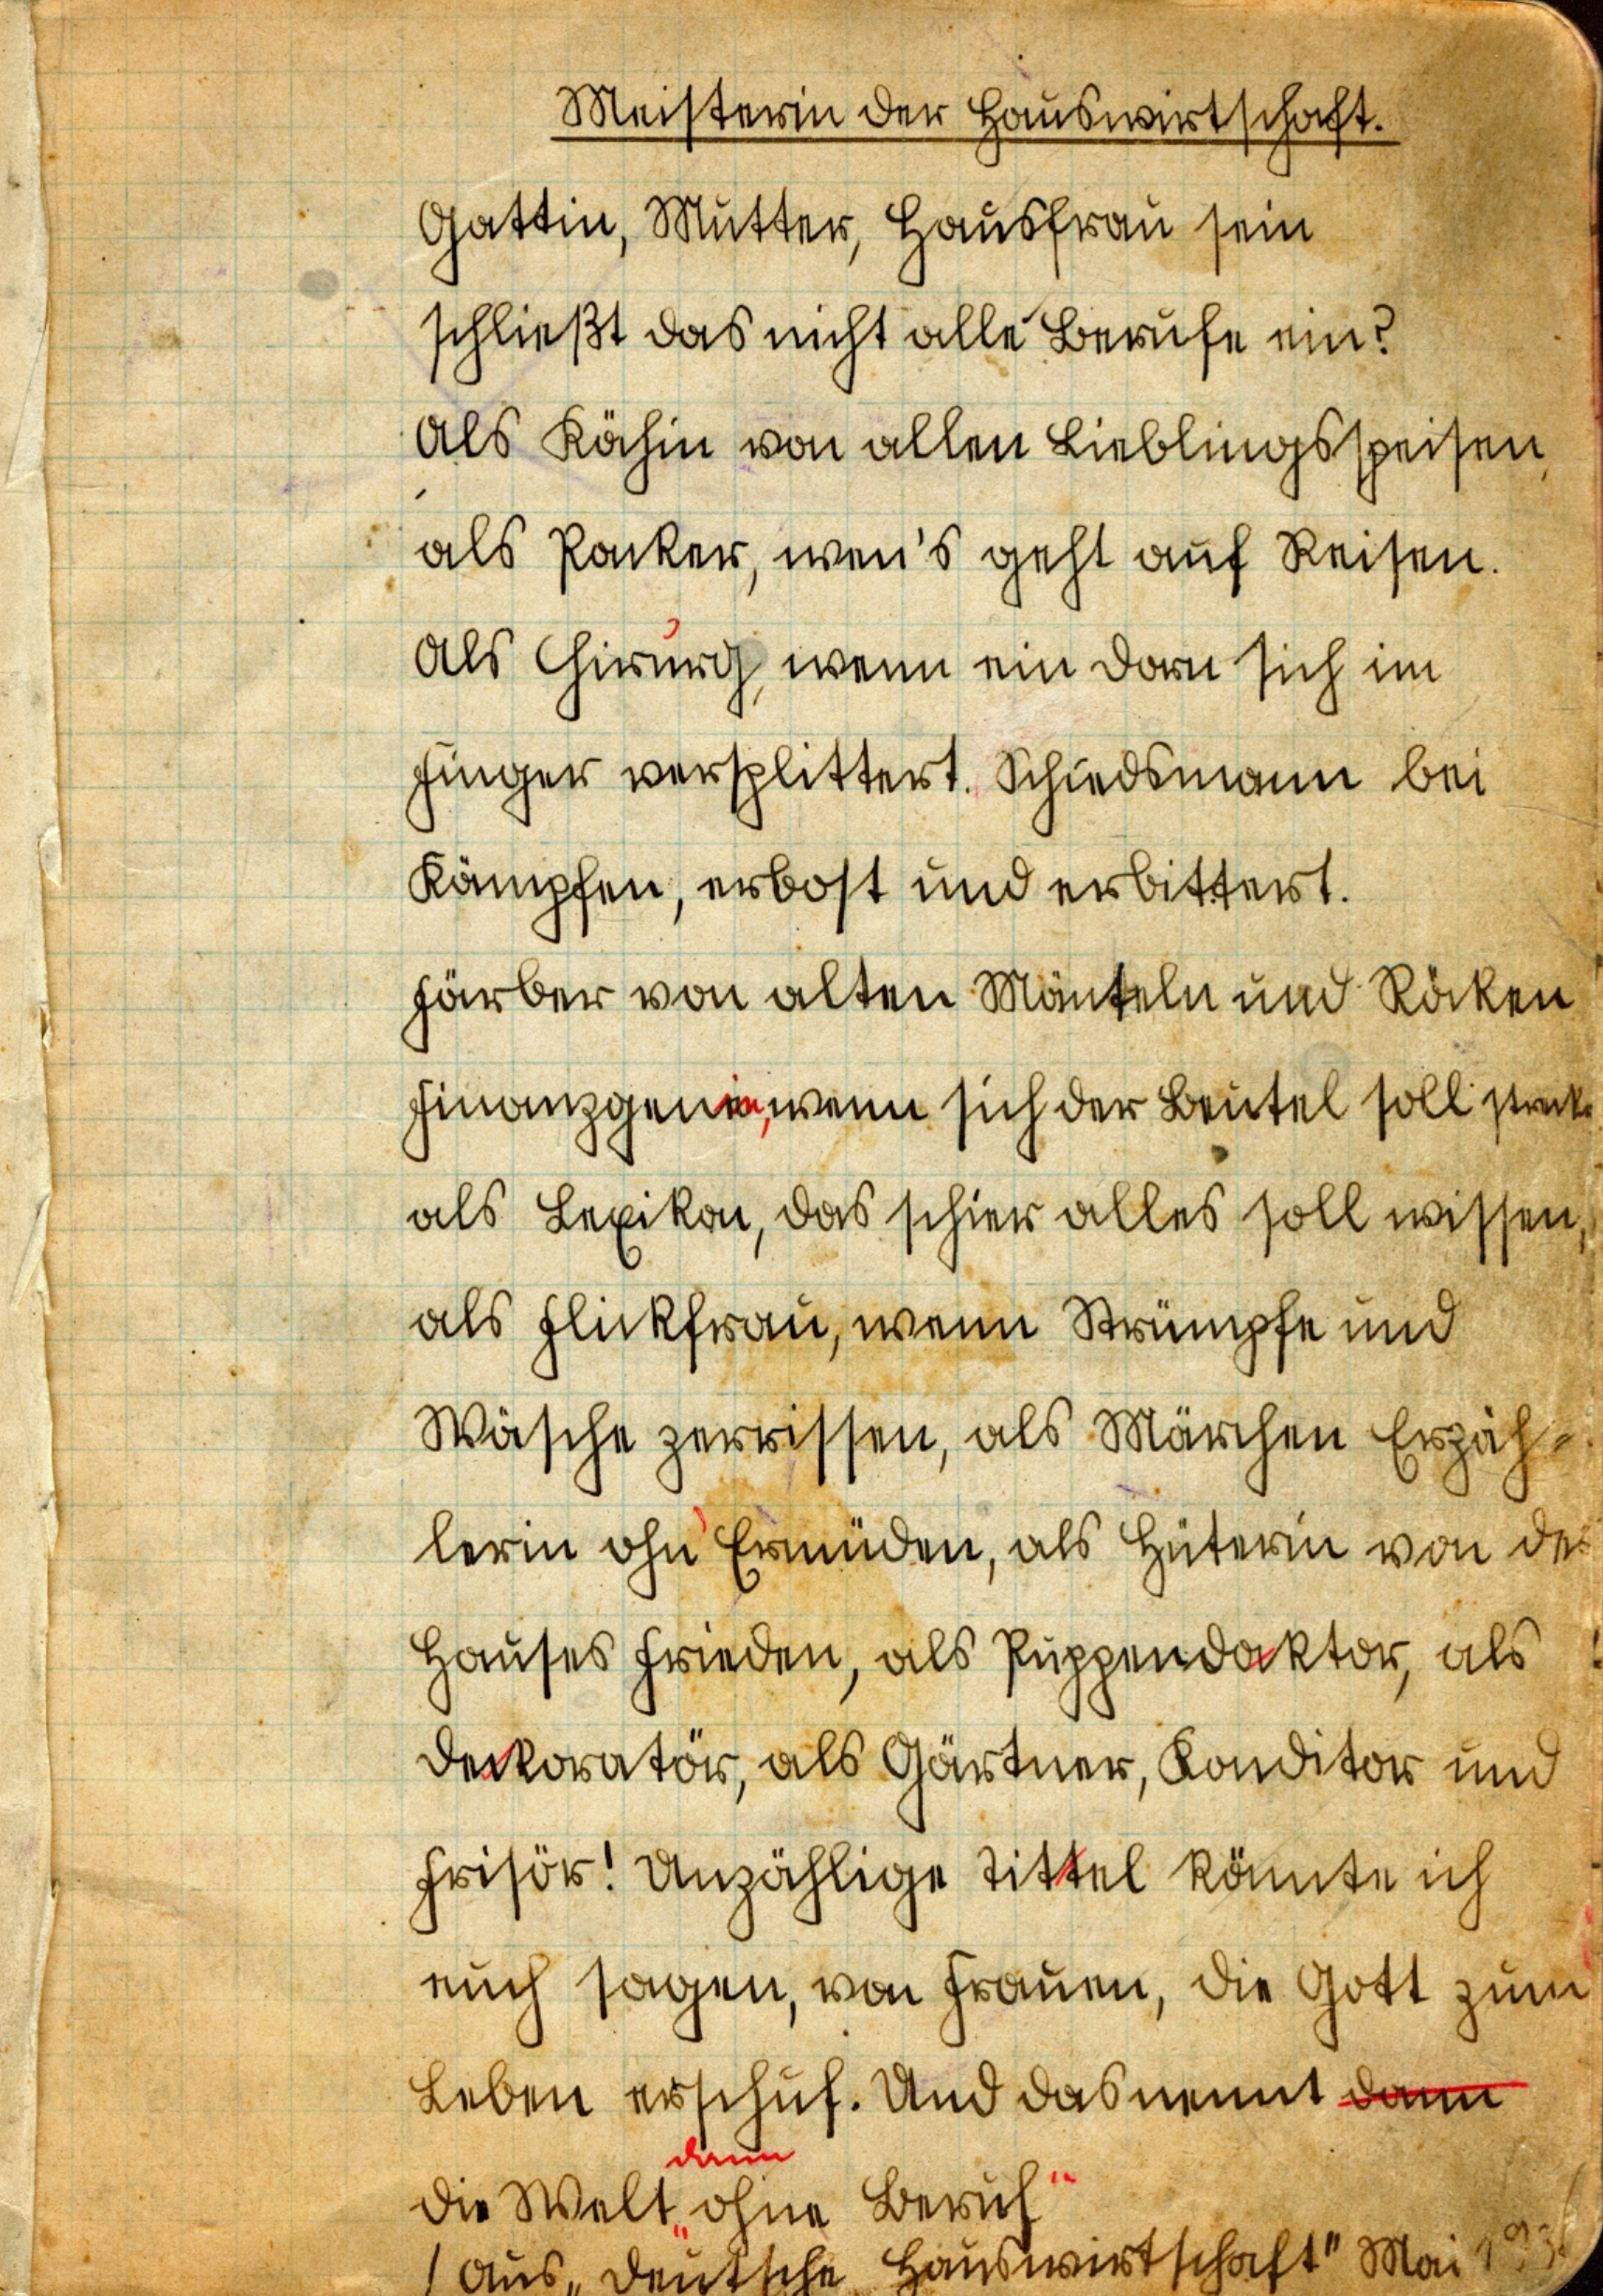 Meisterin der Hauswirtschaft.
Gattin, Mutter, Hausfrau sein
schließt das nicht alle Berufe ein?
Als Köchin von allen Lieblingsspeisen,
als Packer, wen's geht auf Reisen.
Als Chirurg, wenn ein Dorn sich im
Finger versplittert. Schiedsmann bei
Kämpfen, erbost und erbittert.
Färber von alten Mänteln und Röcken
Finanzgenie, wenn sich der Beutel soll strecken
als Lexikon, das schier alles soll wissen,
als Flickfrau, wenn Strümpfe und
Wäsche zerrissen, als Märchen Erzäh-
lerin ohn' Ermüden, als Hüterin von des
Hauses Frieden, als Puppendocktor, als
Deckoratör, als Gärtner, Konditor und
Frisör! Unzählige Tittel könnte ich
euch sagen, von Frauen, die Gott zum
Leben erschuf. Und das nennt dann
dann
die Welt „ohne Beruf“
/ Aus „Deutsche Hauswirtschaft" Mai